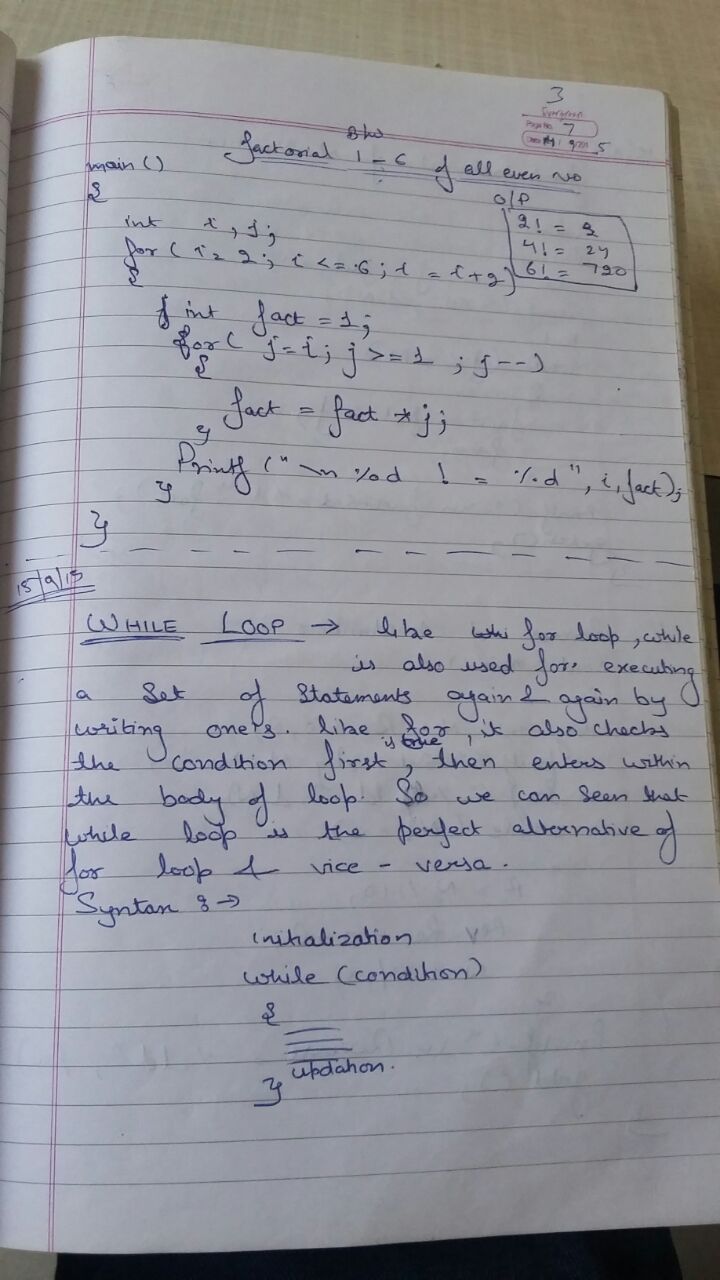 3
Page No. 7
Date 5
B/w
factorial 1 - 6 of all even no
main ()
{
O/P
2! = 2
4! = 24
6! = 720
int i, j;
for ( i= 2 ; i <= 6 ; i = i+2)
{
int fact = 1;
for ( j=i; j >= 1 ; j--)
{
fact = fact * j;
}
Printf ("\n %d ! = %d", i, fact);
}
}
15/9/15
WHILE LOOP → like whi for loop, while
is also used for executing
a Set of Statements again & again by
writing one's. like for, it also checks
is true
the condition first, then enters within
the body of loop. So we can seen that
while loop is the perfect alternative of
for loop & vice - versa.
Syntax :→
initialization
while (condition)
{
updation.
}